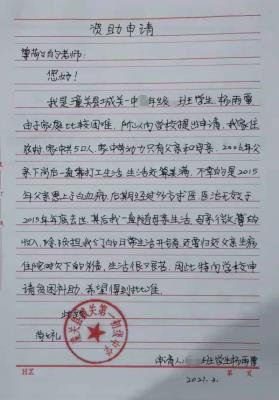 资助申请
尊敬的老师：
您好！
我是潼关县城关一中 年级 班学生杨雨
由于家庭比较困难，所以向学校提出申请，我家住
农村，家中共5口人，家中劳动力只有父亲和母亲，2006年父
亲下岗后一直靠打工生活，生活还算美满，不幸的是2015
年父亲患上了白血病，后期经过 医治无效于
2015年年底去世，其后我一直随母亲生活，母亲微薄的
收入，除了负担我们的日常生活开销还要归还父亲生病
住院时欠下的外债，生活很艰苦，因此特向学校申
请贫困补助，希望得到批准。
此致
敬礼
潼关县城关第一初级中学
申请人： 班学生杨雨
2021.3.
HZ 第 页